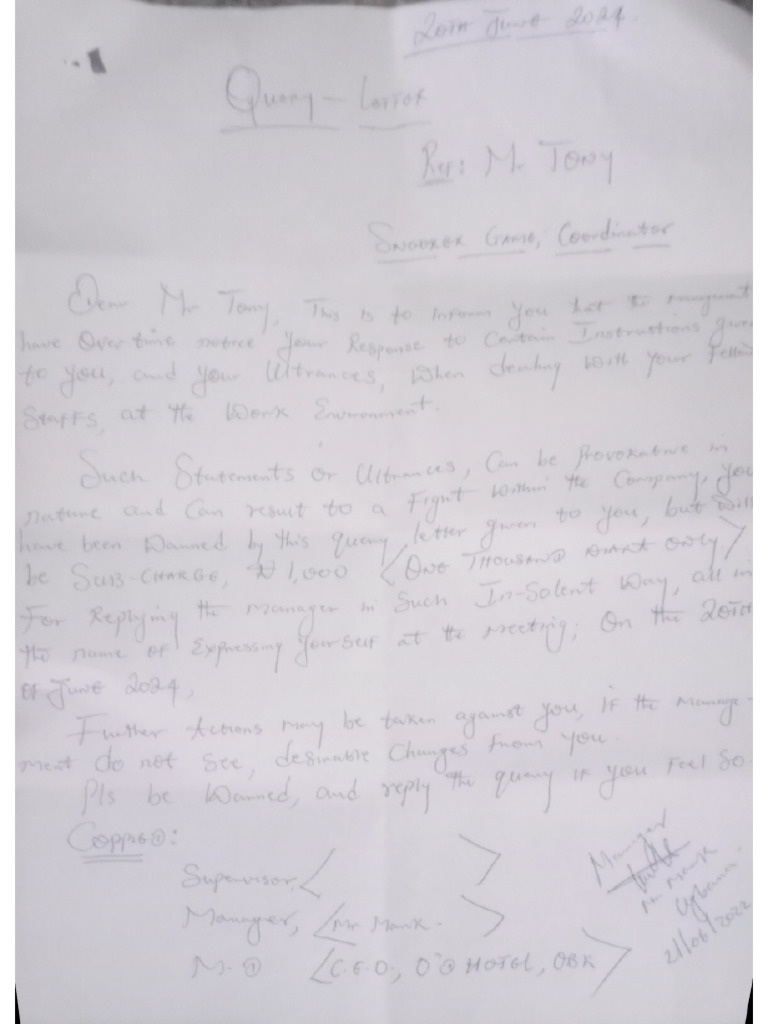 20TH June 2024.
Query - Letter
Ref: Mr Tony
Snooker Game, Coordinator
Dear Mr Tony, This is to Inform you that the management
have Over time notice your Response to Certain Instructions given
to you, and your Uttrances, When dealing with your Fellow
Staffs, at the Work Environment.
Such Statements or Uttrances, Can be Provokative in
nature and Can result to a Fight within the Company, you
have been Warned by this query letter given to you, but will
be SUB-CHARGE, ₦1,000 <ONE THOUSAND only>
For Replying the Manager in Such In-Solent Way, all in
the name of Expressing yourself at the meeting; On the 20TH
of June 2024,
Further Actions may be taken against you, if the Manage-
ment do not See, desirable Changes from you.
Pls be Warned, and reply the query if you Feel So.
Supervisor, < >
Manager, <Mr Mark. >
M. D <C.E.O., HOTEL, OBK>
Manager
Mr Mark
21/06/2022